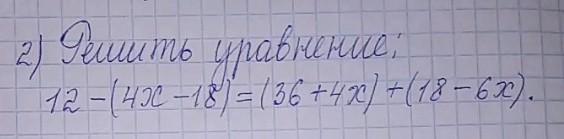 2) Решить уравнение:
12-(4x-18)=(36+4x)+(18-6x).